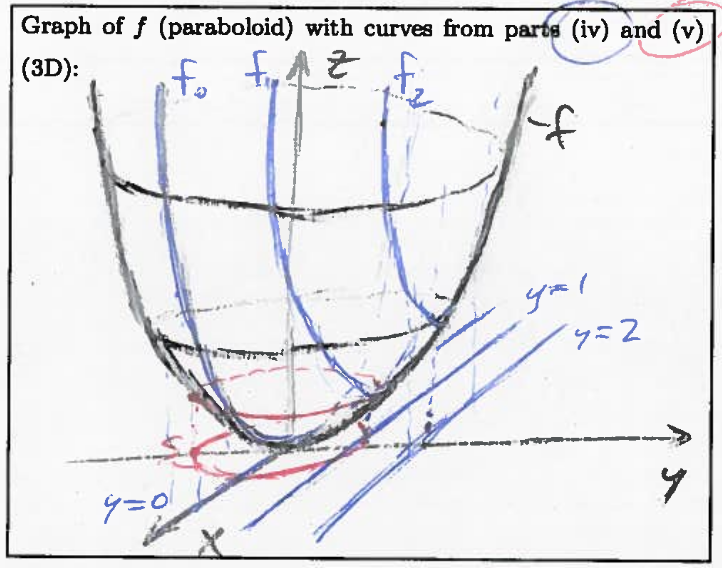 Graph of f (paraboloid) with curves from parts (iv) and (v)
(3D):
f₀ f₁ z f₂
f
y=1
y=2
y=0
x
y